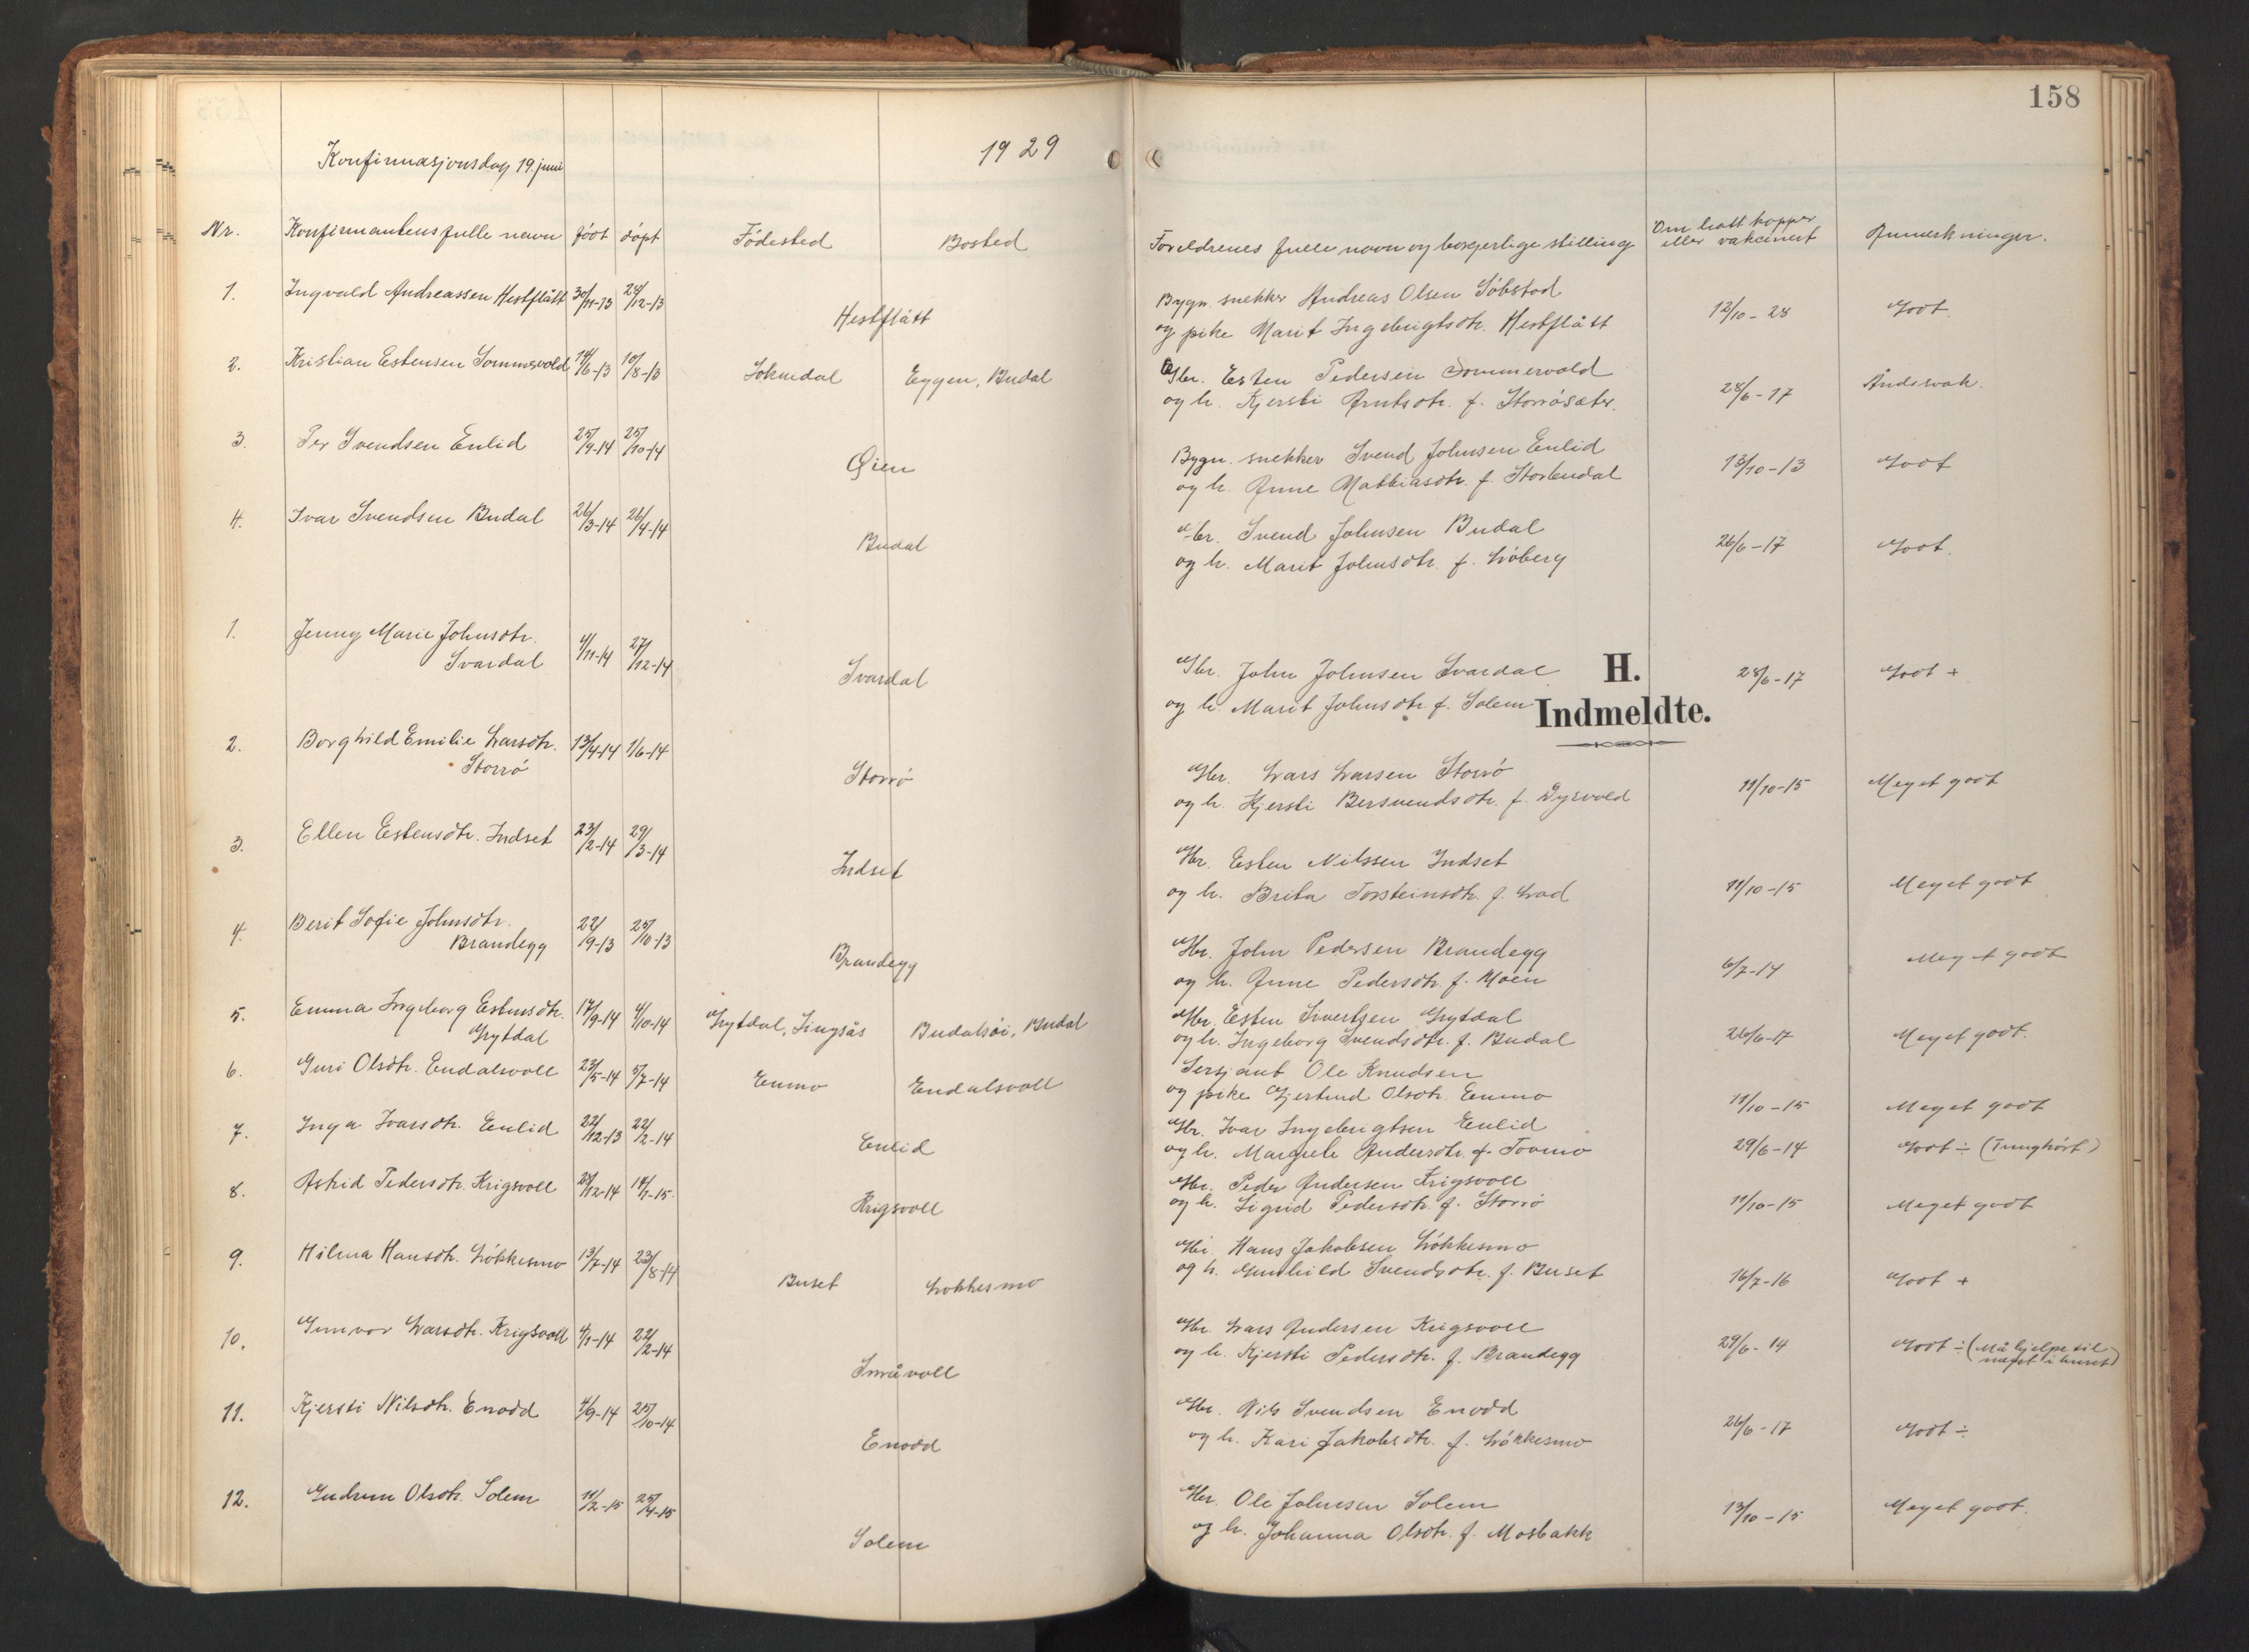 158
Konfirmasjonsdag 19. juni 1929
Nr. Konfirmantens fulle navn födt döpt Födested Bosted Foreldrenes fulle navn og borgerlige stilling Om hatt kopper eller vakcinert Anmerkninger.
1. Ingvald Andreassen Hestflått 30/11-13 28/12-13 Hestflått Bygn. snekker Andreas Olsen Söbstad 12/10-28 Godt.
og pike Marit Ingebrigtsdtr. Hestflått
2. Kristian Estensen Sommervold 14/6-13 10/8-13 Soknedal Eggen, Budal Gbr. Esten Pedersen Sommervold 28/6-17 Åndssvak.
og h. Kjersti Arntsdtr. f. Storrösæter.
3. Per Svendsen Enlid 25/9-14 25/10-14 Øien Bygn. snekker Svend Johnsen Enlid 13/10-13 Godt
og h. Anne Mathiasdtr. f. Storbudal
4. Ivar Svendsen Budal 26/3-14 26/4-14 Budal Gbr. Svend Johnsen Budal 26/6-17 Godt.
og h. Marit Johnsdtr. f. Löberg
H.
Indmeldte.
1. Jenny Marie Johnsdtr. 4/11-14 27/12-14
Svardal Svardal Gbr. John Johnsen Svardal 28/6-17 Godt +
og h. Marit Johnsdtr. f. Solem
2. Borghild Emilie Larsdtr. 13/4-14 1/6-14
Storrö Storrö Gbr. Lars Larsen Storrö 11/10-15 Meget godt
og h. Kjersti Bersvendsdtr. f. Dyrvold
3. Ellen Estensdtr. Indset 23/2-14 29/3-14 Indset Gbr. Esten Nilssen Indset 11/10-15 Meget godt
og h. Brita Torsteinsdtr. f. Lad
4. Berit Sofie Johnsdtr. 22/9-13 25/10-13
Brandegg Brandegg Gbr. John Pedersen Brandegg 6/7-14 Meget godt
og h. Anne Pedersdtr. f. Moen
5. Emma Ingeborg Estensdtr. 17/9-14 4/10-14 Grytdal, Singsås Budalsöi, Budal Gbr. Esten Sivertsen Grytdal 26/6-17 Meget godt.
Grytdal og h. Ingeborg Svendsdtr. f. Budal
6. Guri Olsdtr. Endalsvoll 23/5-14 5/7-14 Enmo Endalsvoll Sersjant Ole Knudsen 11/10-15 Meget godt
og pike Gjertrud Olsdtr. Enmo
7. Inga Ivarsdtr. Enlid 22/12-13 22/2-14 Enlid Gbr. Ivar Ingebrigtsen Enlid 29/6-14 Godt ÷ (Tunghört)
og h. Margrete Andersdtr. f. Toomo
8. Astrid Pedersdtr. Krigsvoll Krigsvoll Gbr. Peder Andersen Krigsvoll 11/10-15 Meget godt
og h. Sigrid Pedersdtr. f. Storrö
9. Hilma Hansdtr. Lökkesmo 13/7-14 23/8-14 Buset Lökkesmo Gbr. Hans Jakobsen Lökkesmo 16/7-16 Godt +
og h. Gunhild Svendsdtr. f. Buset
10. Gunvor Larsdtr. Krigsvoll 4/1-14 22/2-14 Småvoll Gbr. Lars Andersen Krigsvoll 29/6-14 Godt ÷ (Må hjelpe til
og h. Kjersti Pedersdtr. f. Brandegg meget i huset)
11. Kjersti Nilsdtr. Enodd 4/9-14 25/10-14 Enodd Gbr. Nils Svendsen Enodd 26/6-17 Godt ÷
og h. Kari Jakobsdtr. f. Lökkesmo
12. Gudrun Olsdtr. Solem 11/2-15 25/4-15 Solem Gbr. Ole Johnsen Solem 13/10-15 Meget godt.
og h. Johanna Olsdtr. f. Mosbakk